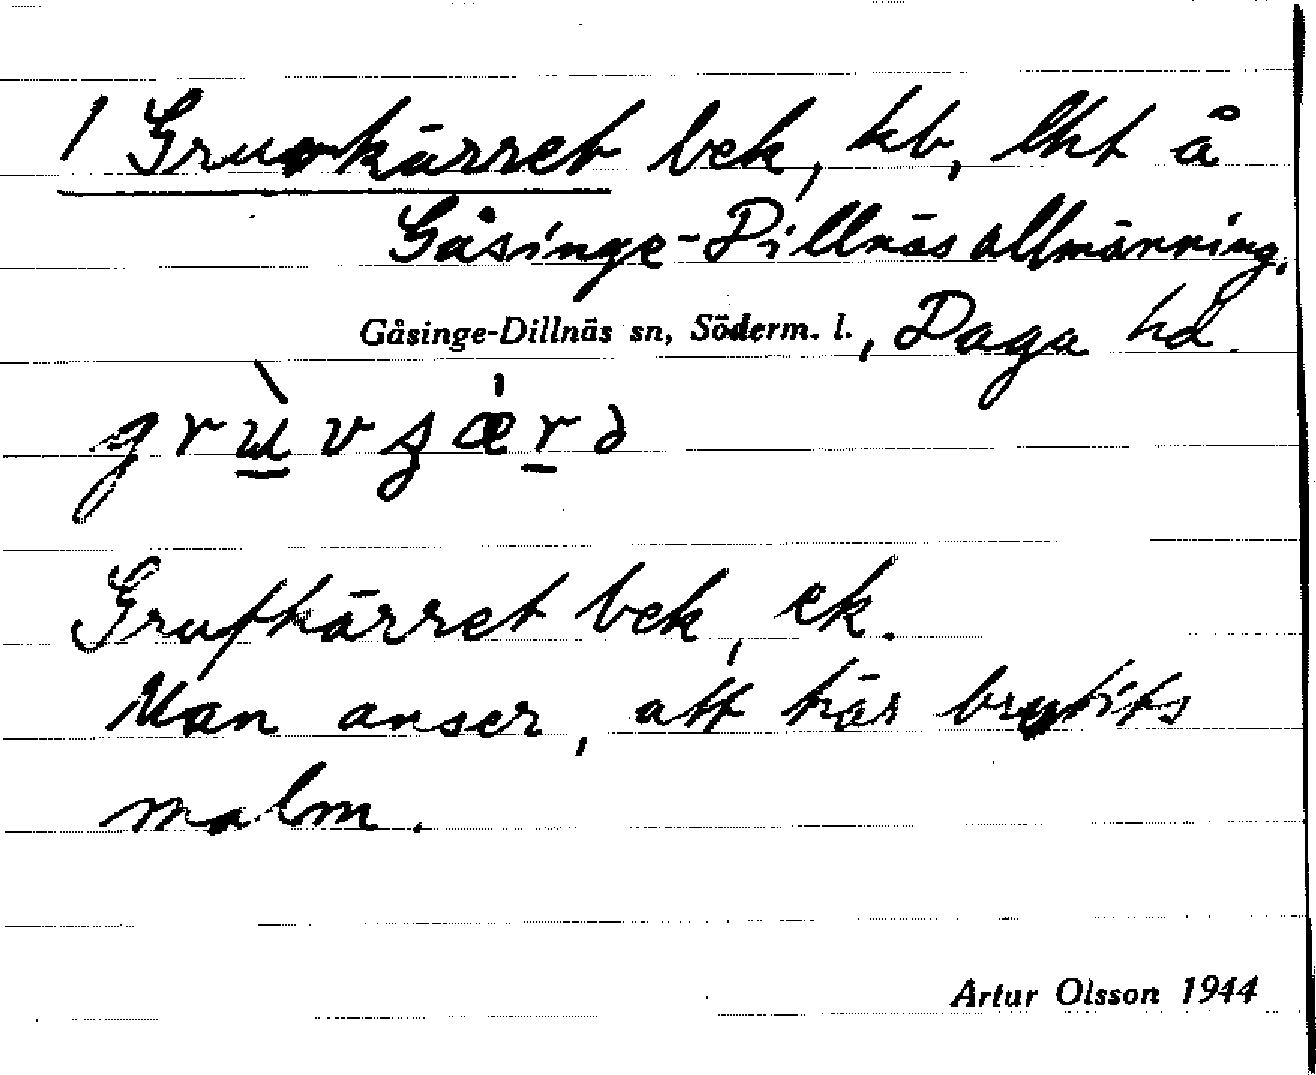 1 Gruvkärret bek, kb, lht å
Gåsinge-Dillnäs allmänning.
Gåsinge-Dillnäs sn, Söderm. l., Daga hd.
Grufkärret bek, ek.
Man anser, att här brytits
malm.
Artur Olsson 1944